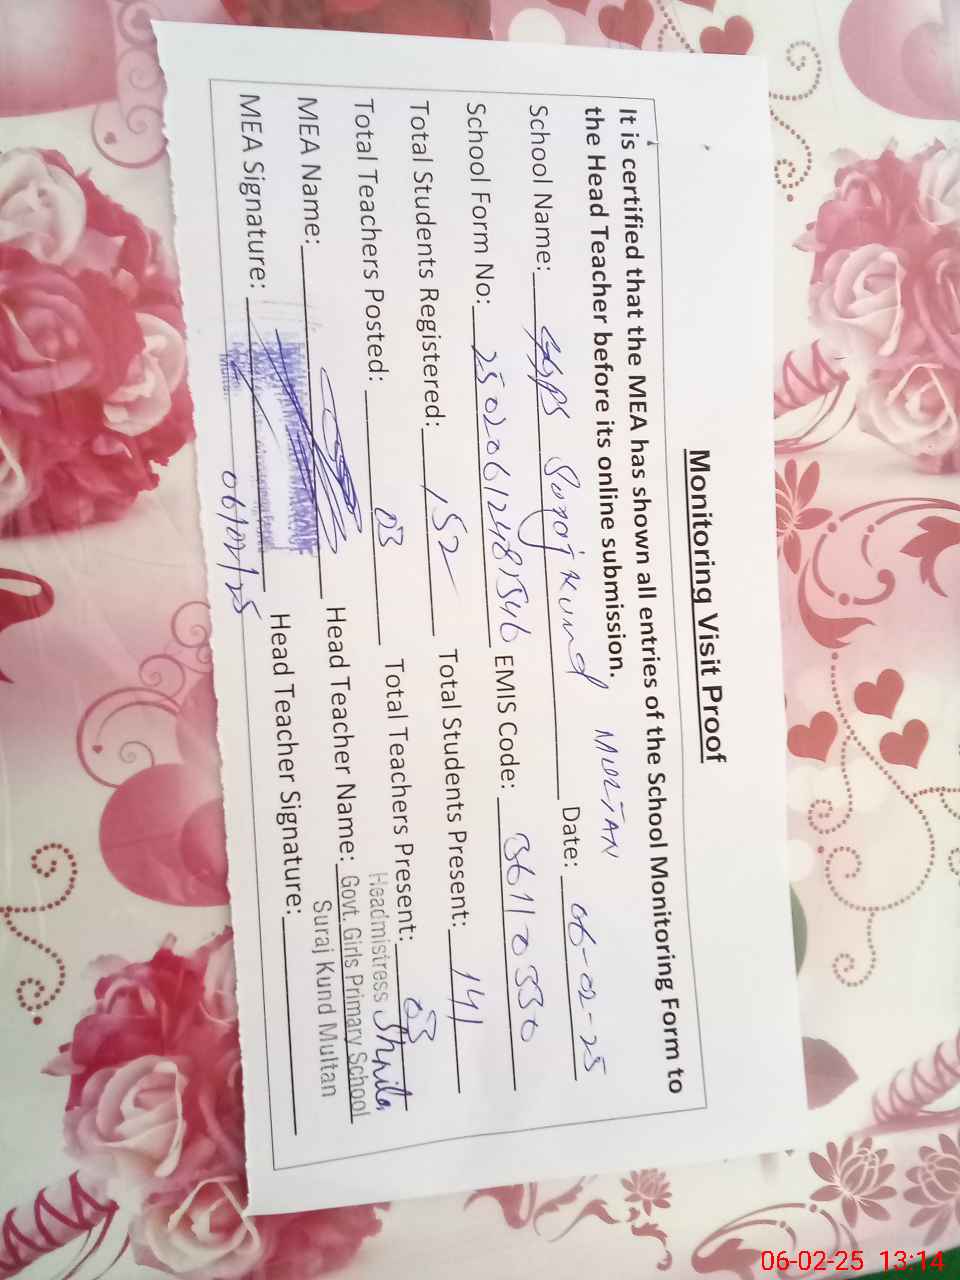 Monitoring Visit Proof
It is certified that the MEA has shown all entries of the School Monitoring Form to
the Head Teacher before its online submission.
School Name: GGPS Suraj Kund MULTAN Date: 06-02-25
School Form No: 25020612481546 EMIS Code: 36110330
Total Students Registered: 152 Total Students Present: 141
Total Teachers Posted: 03 Total Teachers Present: 03
MEA Name: Head Teacher Name: Headmistress
Govt. Girls Primary School
Suraj Kund Multan
MEA Signature: 06/02/25 Head Teacher Signature:
06-02-25 13:14